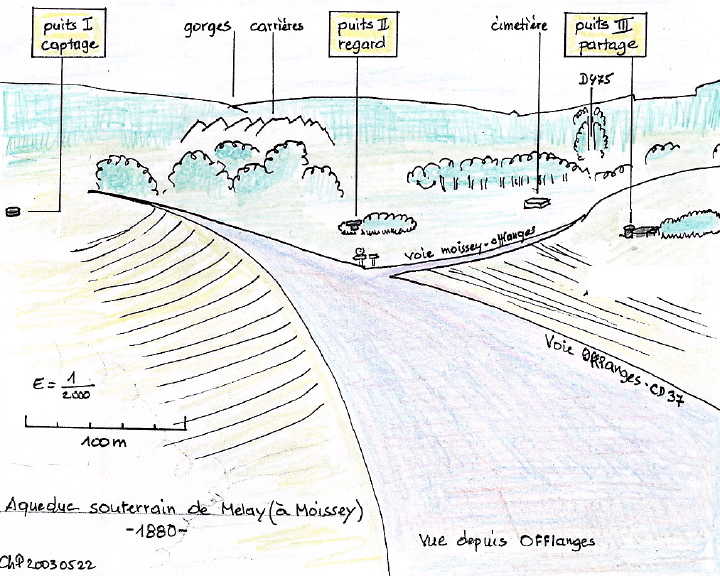 puits I
captage
gorges
carrières
puits II
regard
cimetière
puits III
partage
D475
voie moissey-offlanges
Voie Offlanges-CD37
E = 1/2000
100m
Aqueduc souterrain de Melay (à Moissey)
-1880-
Vue depuis Offlanges
ChP20030522